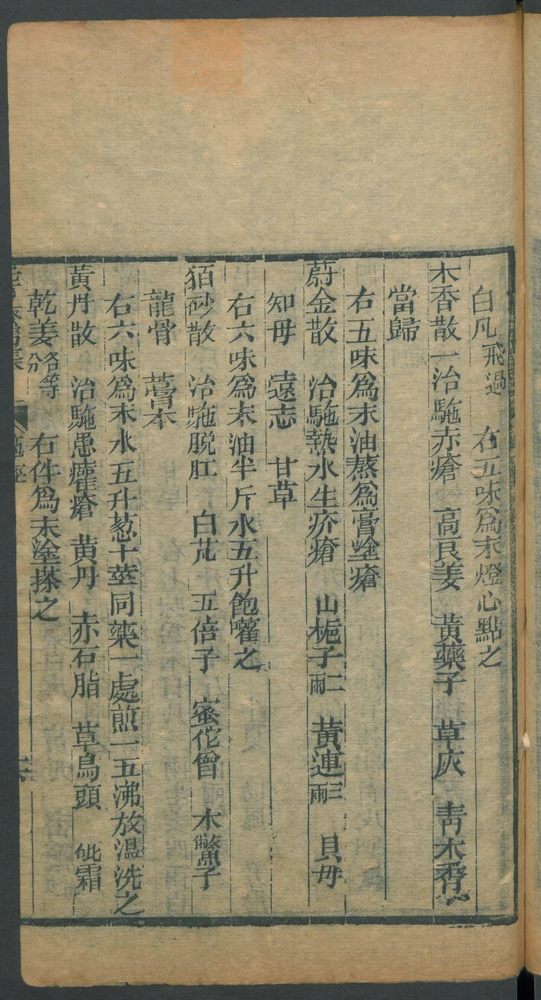 白凡飛過 右五味為末燈心點之
木香散一治駞赤瘡 高良姜 黃藥子 草灰 青木香
當歸
右五味為末油蒸為膏塗瘡
蔚金散 治駞熱水生疥瘡 山梔子二兩 黃連三兩 貝母
知母 遠志 甘草
右六味為末油半斤水五升飽嚾之
硇砂散 治駞脱肛 白芃 五倍子 蜜佗僧 木鱉子
龍骨 藁本
右六味為末水五升葱十莖同藥一處煎一五沸放温洗之
黃丹散 治駞患癰瘡 黃丹 赤石脂 草烏頭 砒霜
乾姜各等 右件為末塗搽之